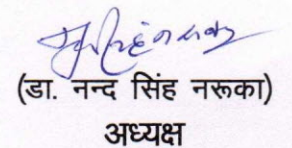 (डा. नन्द सिंह नरूका)
अध्यक्ष